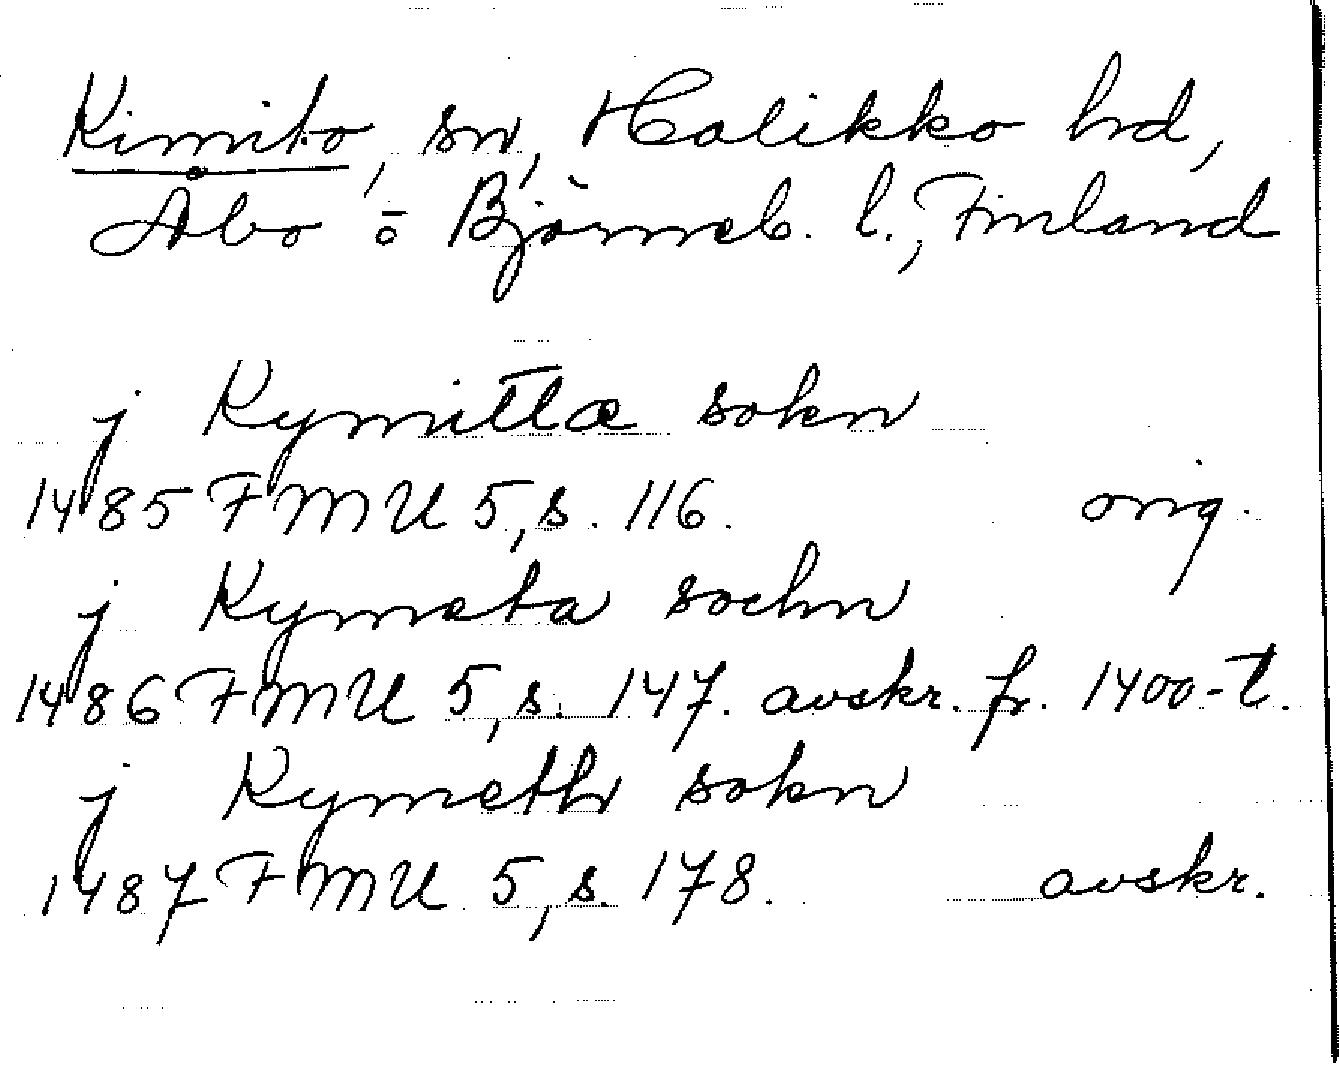 Kimito, sn, Halikko hd,
Åbo o Björneb. l., Finland
j Kymittæ sokn
1485 FMU 5, s. 116. orig.
j Kymeta sochn
1486 FMU 5, s. 147. avskr. fr. 1400-t.
j Kymeth sokn
1487 FMU 5, s. 178. avskr.